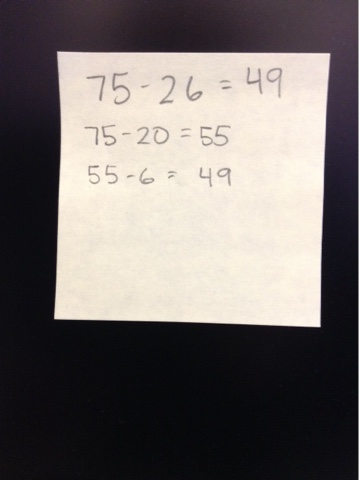 75 - 26 = 49
75 - 20 = 55
55 - 6 = 49